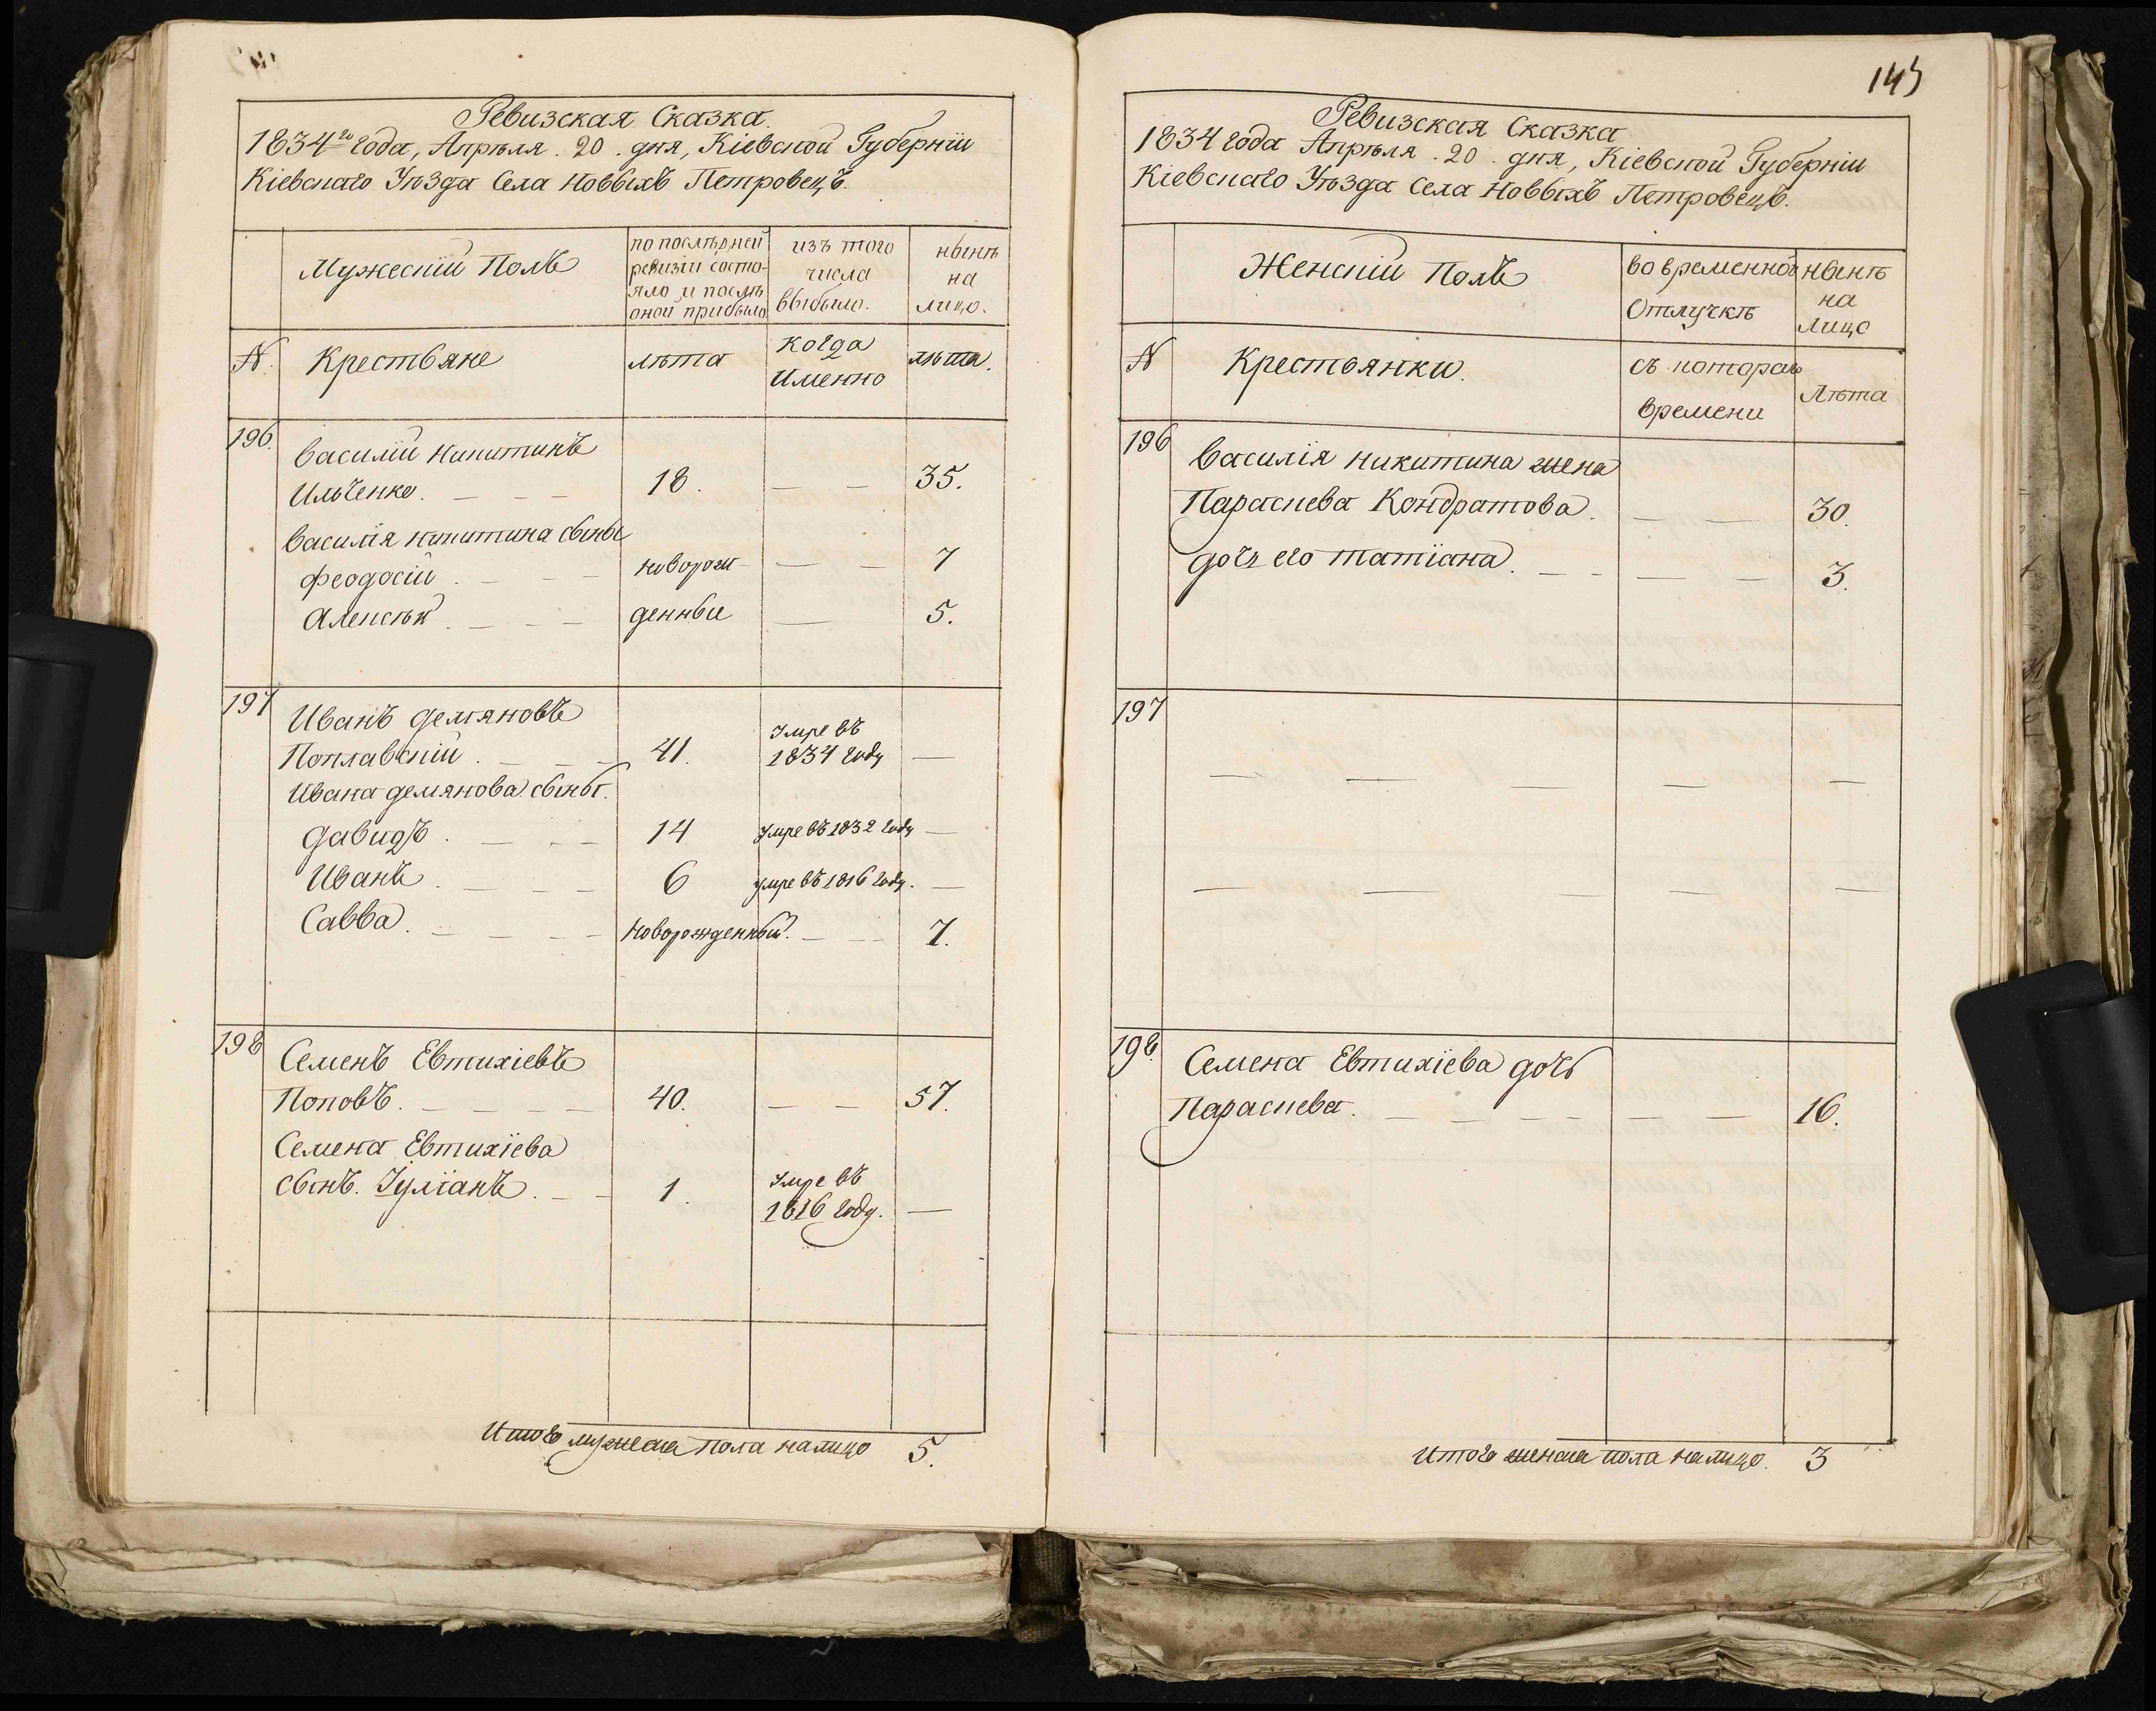 Ревизская Сказка.
1834го года, Апрѣля. 20. дня, Кіевской Губерніи
Кіевскаго Уѣзда Села Новыхъ Петровецъ.
Мужескій Полъ
по послѣдней
ревизіи состо-
яло и послѣ
оной прибыло
изъ того
числа
выбыло.
нынѣ
на
лицо.
N.
Крестьяне
лѣта
когда
Именно
лѣта.
196.
Василій Никитинъ
Ильченко. 18. 35.
Василія Никитина сыны
Феодосій новорож- 7
Алексѣй денныи 5.
197
Иванъ Демяновъ
Поплавскій 41. Умре въ 1834 году
Ивана Демянова сыны.
Давидъ 14 Умре въ 1832 году
Иванъ 6 умре въ 1816 году.
Савва. Новорожденный. 7.
198
Семенъ Евтихіевъ
Поповъ. 40. 57.
Семена Евтихіева
сынъ. Іуліанъ 1. Умре въ 1816 году.
Итого мужеска пола налицо 5.
145
Ревизская Сказка
1834 года Апрѣля. 20. дня, Кіевской Губерніи
Кіевскаго Уѣзда Села Новыхъ Петровецъ.
Женскій Полъ
во временной
Отлучкѣ
нынѣ
на
Лицо
N
Крестьянки.
съ котораго
времени
Лѣта
196
Василія Никитина жена
Параскева Кондратова. 30.
дочь его Татіана. 3.
197
198.
Семена Евтихіева дочь
Параскева. 16.
Итого женска пола налицо. 3